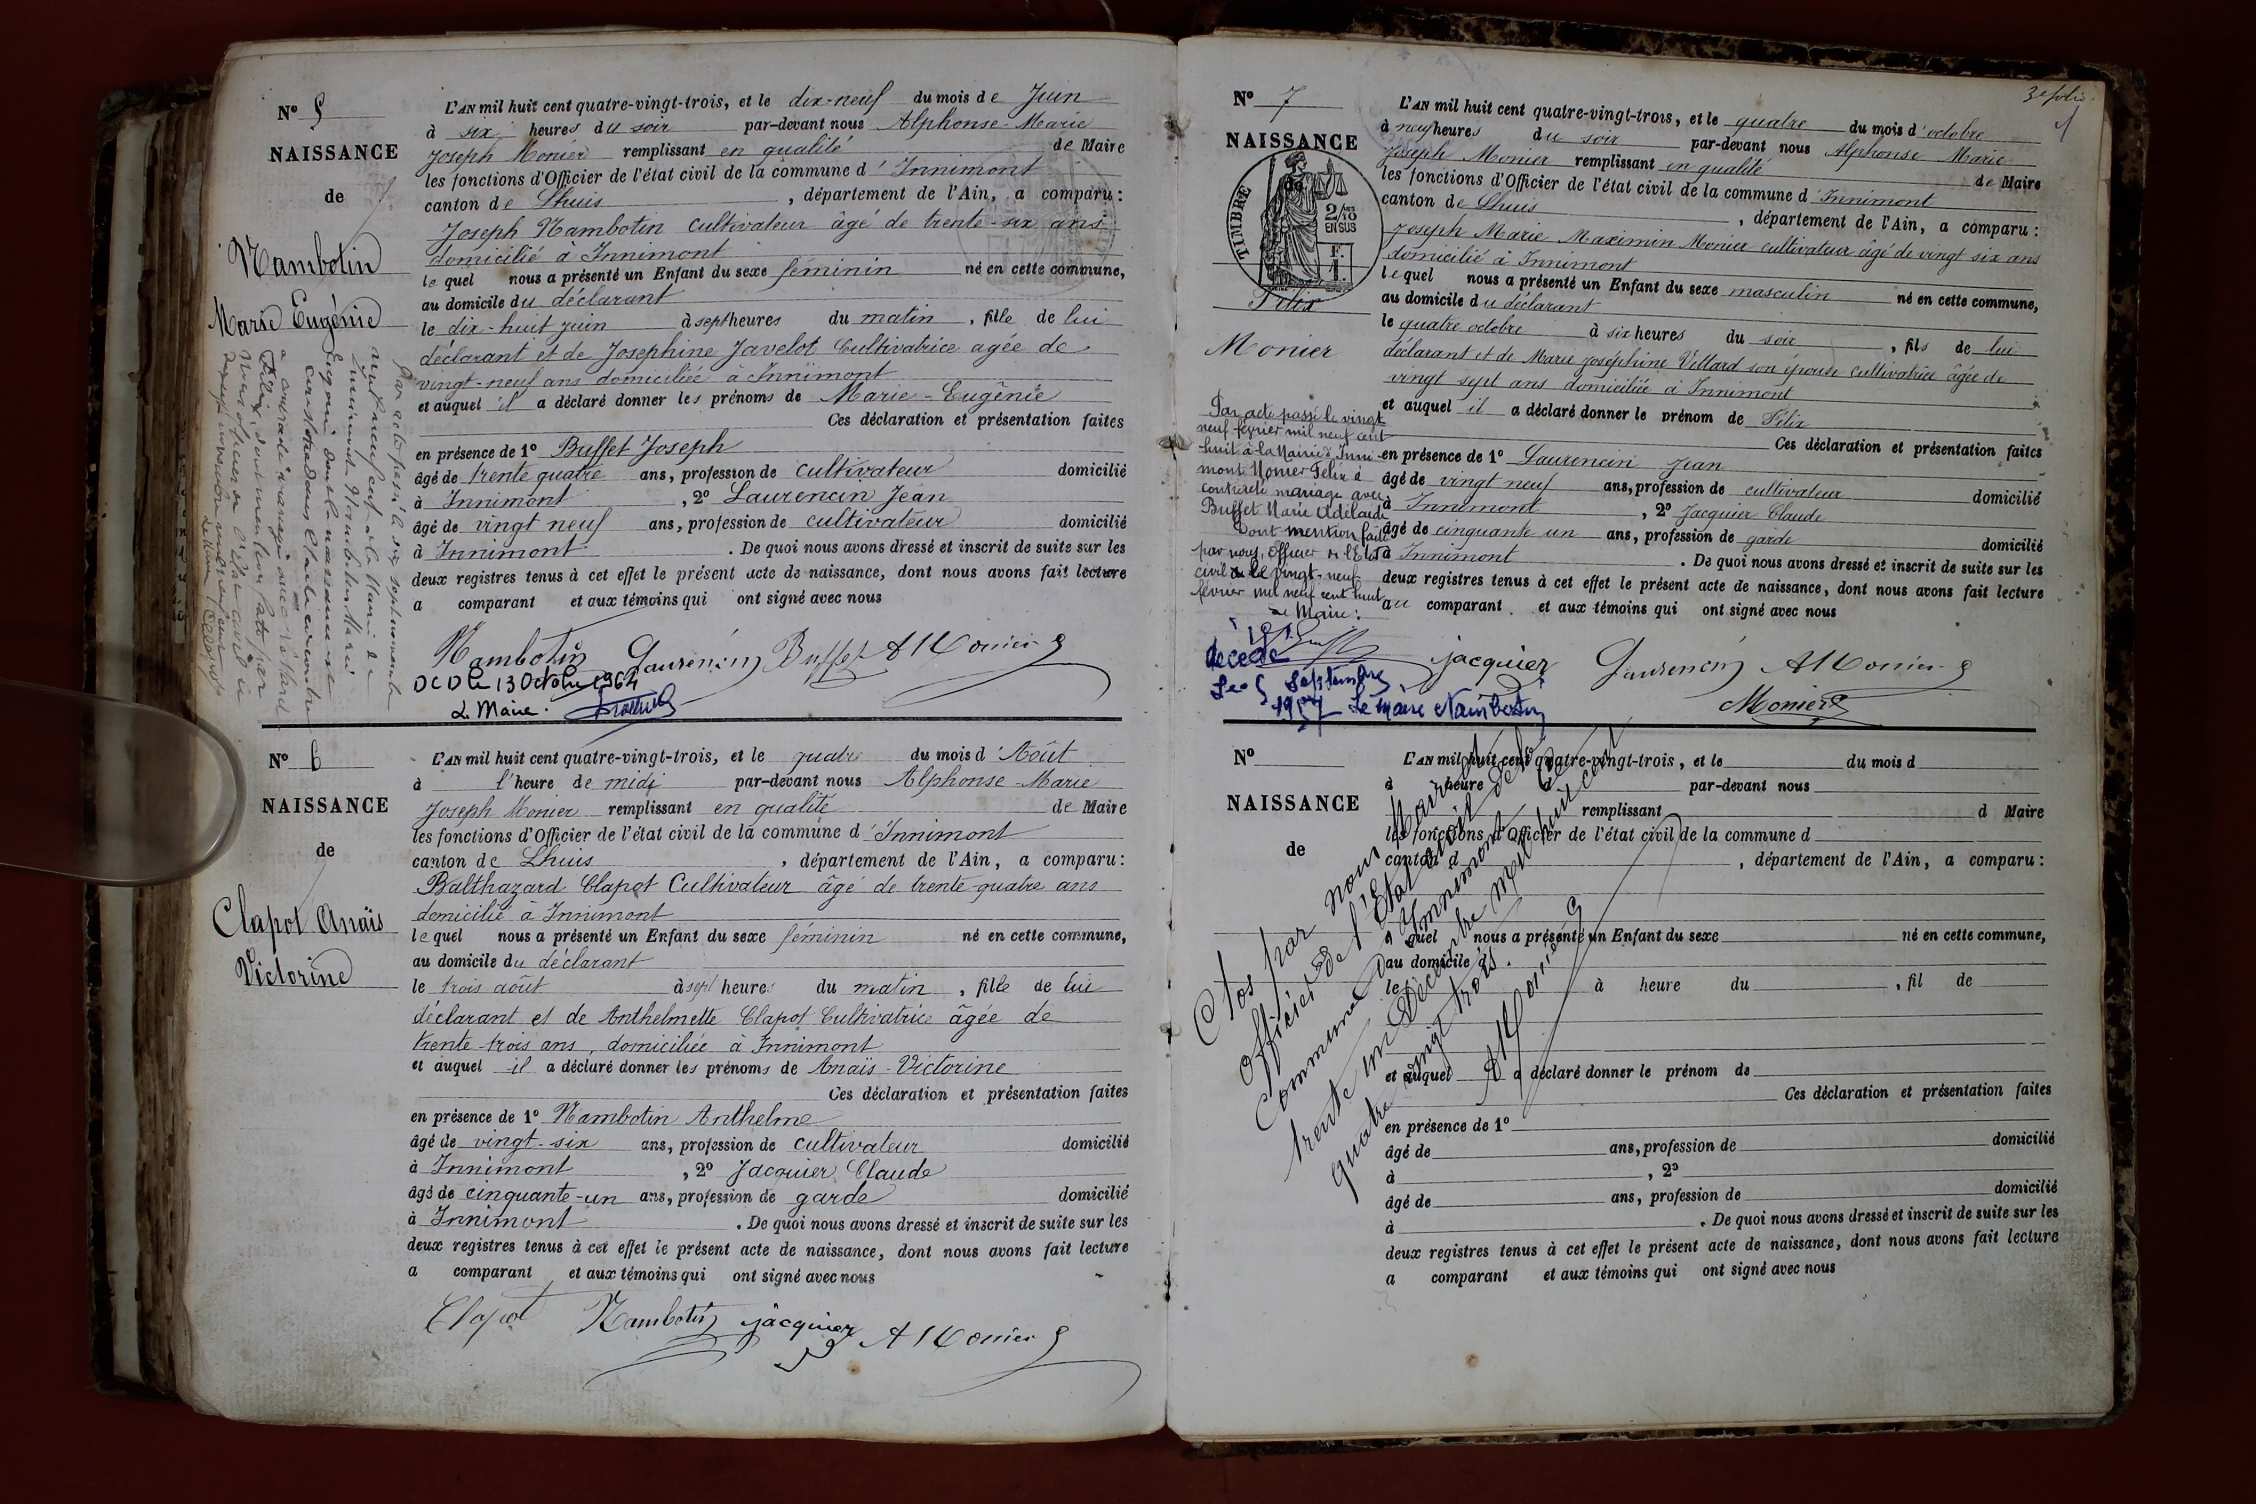 N° 5
NAISSANCE
de
Nambotin
Marie Eugénie
L'AN mil huit cent quatre-vingt-trois, et le dix-neuf du mois de Juin
à six heures du soir par-devant nous Alphonse-Marie
Joseph Monier remplissant en qualité de Maire
les fonctions d'Officier de l'état civil de la commune d'Innimont
canton de Lhuis, département de l'Ain, a comparu:
Joseph Nambotin cultivateur âgé de trente-six ans
domicilié à Innimont
lequel nous a présenté un Enfant du sexe féminin né en cette commune,
au domicile du déclarant
le dix-huit juin à sept heures du matin, fille de lui
déclarant et de Josephine Javelot Cultivatrice agée de
vingt-neuf ans domiciliée à Innimont
et auquel il a déclaré donner les prénoms de Marie-Eugénie
Ces déclaration et présentation faites
en présence de 1° Buffet Joseph
âgé de trente quatre ans, profession de cultivateur domicilié
à Innimont, 2° Laurencin Jean
âgé de vingt neuf ans, profession de cultivateur domicilié
à Innimont. De quoi nous avons dressé et inscrit de suite sur les
deux registres tenus à cet effet le présent acte de naissance, dont nous avons fait lecture
a comparant et aux témoins qui ont signé avec nous
Nambotin Laurencin Buffet A Monier
DCD le 13 Octobre 1964
L. Maire.
N° 6
NAISSANCE
de
Clapot Anaïs
Victorine
L'AN mil huit cent quatre-vingt-trois, et le quatre du mois d'Août
à l'heure de midi par-devant nous Alphonse-Marie
Joseph Monier remplissant en qualité de Maire
les fonctions d'Officier de l'état civil de la commune d'Innimont
canton de Lhuis, département de l'Ain, a comparu:
Balthazard Clapot Cultivateur âgé de trente-quatre ans
domicilié à Innimont
lequel nous a présenté un Enfant du sexe féminin né en cette commune,
au domicile du déclarant
le trois août à sept heures du matin, fille de lui
déclarant et de Anthelmette Clapot Cultivatrice âgée de
trente-trois ans, domiciliée à Innimont
et auquel il a déclaré donner les prénoms de Anaïs-Victorine
Ces déclaration et présentation faites
en présence de 1° Nambotin Anthelme
âgé de vingt-six ans, profession de cultivateur domicilié
à Innimont, 2° Jacquier Claude
âgé de cinquante-un ans, profession de garde domicilié
à Innimont. De quoi nous avons dressé et inscrit de suite sur les
deux registres tenus à cet effet le présent acte de naissance, dont nous avons fait lecture
a comparant et aux témoins qui ont signé avec nous
Clapot Nambotin jacquier A Monier
3e folio
N° 7
NAISSANCE
de
TIMBRE
2/10 EN SUS
Félix
Monier
L'AN mil huit cent quatre-vingt-trois, et le quatre du mois d'octobre
à neuf heures du soir par-devant nous Alphonse Marie
Joseph Monier remplissant en qualité de Maire
les fonctions d'Officier de l'état civil de la commune d'Innimont
canton de Lhuis, département de l'Ain, a comparu:
Joseph Marie Maximin Monier cultivateur âgé de vingt six ans
domicilié à Innimont
lequel nous a présenté un Enfant du sexe masculin né en cette commune,
au domicile du déclarant
le quatre octobre à six heures du soir, fils de lui
déclarant et de Marie Joséphine Vettard son épouse cultivatrice âgée de
vingt sept ans domiciliée à Innimont
et auquel il a déclaré donner le prénom de Félix
Ces déclaration et présentation faites
en présence de 1° Laurencin Jean
âgé de vingt neuf ans, profession de cultivateur domicilié
à Innimont, 2° Jacquier Claude
âgé de cinquante un ans, profession de garde domicilié
à Innimont. De quoi nous avons dressé et inscrit de suite sur les
deux registres tenus à cet effet le présent acte de naissance, dont nous avons fait lecture
au comparant et aux témoins qui ont signé avec nous
Par acte passé le vingt
neuf février mil neuf cent
huit à la Mairie d'Inni-
mont Monier Félix a
contracté mariage avec
Buffet Marie Adelaïde
Dont mention faite
par nous, officier de l'Etat
civil le vingt-neuf
février mil neuf cent huit
Le Maire:
jacquier Laurencin A Monier
Monier
décédé
Le 5 Septembre
1957 Le Maire Nambotin
N°
NAISSANCE
de
L'AN mil huit cent quatre-vingt-trois, et le du mois d
à heure par-devant nous
remplissant d Maire
les fonctions d'Officier de l'état civil de la commune d
canton d, département de l'Ain, a comparu:
quel nous a présenté un Enfant du sexe né en cette commune,
au domicile d
le à heure du, fil de
et auquel a déclaré donner le prénom de
Ces déclaration et présentation faites
en présence de 1°
âgé de ans, profession de domicilié
à, 2°
âgé de ans, profession de domicilié
à. De quoi nous avons dressé et inscrit de suite sur les
deux registres tenus à cet effet le présent acte de naissance, dont nous avons fait lecture
a comparant et aux témoins qui ont signé avec nous
Clos par nous Maire et
officier de l'Etat civil de la
commune d'Innimont le
trente un Décembre mil huit cent
quatre vingt trois.
A Monier